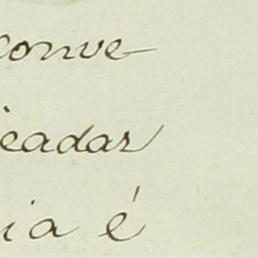 conve
eadas
ia é